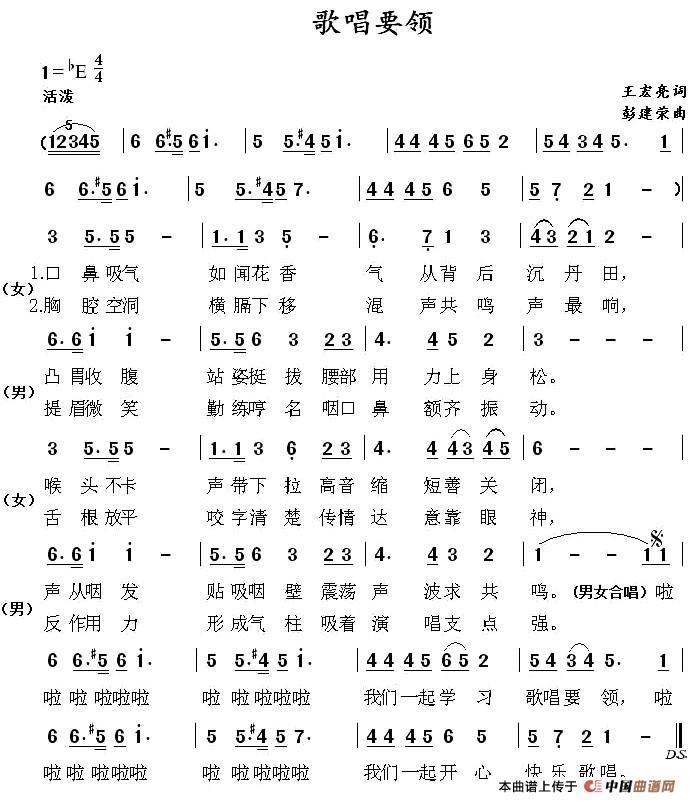 歌唱要领
1=♭E 4/4
活泼
王宏亮词
彭建荣曲
(12345 | 6 6.#56 i. | 5 5.#45 i. | 44 44 56 5 2 | 54 345. 1 |
5
6 6.#56 i. | 5 5.#45 7. | 44 44 56 5 | 5 7 2 1 - ) |
3 5.5 5 - | 1.1 3 5 - | 6. 7 1 3 | 43 21 - |
(女) 1.口 鼻吸气 如闻花香 气 从背后 沉丹田,
2.胸 腔空洞 横膈下移 混 声共鸣 声最响,
6.6 i i - | 5.5 6 3 23 | 4. 4 5 2 | 3 - - |
(男) 凸胃收腹 站姿挺拔 腰部用 力上身 松。
提眉微笑 勤练哼名 咽口鼻 额齐振 动。
3 5.5 5 - | 1.1 3 6 23 | 4. 4 43 45 | 6 - - |
(女) 喉 头不卡 声带下拉 高音缩 短善关 闭,
舌 根放平 咬字清楚 传情达 意靠眼 神,
6.6 i i - | 5.5 6 3 23 | 4. 4 3 2 | 1 - - 11 |
(男) 声从咽发 贴吸咽壁 震荡声 波求共 鸣。(男女合唱)啦
反作用力 形成气柱 吸着演 唱支点 强。
6 6.#5 6 i. | 5 5.#4 5 i. | 44 44 56 65 2 | 54 34 5. 1 |
啦 啦 啦啦啦 啦 啦 啦啦啦 我们一起学 习 歌唱要 领,啦
6 6.#5 6 i. | 5 5.#4 5 7. | 44 44 5 6 5 | 5 7 2 1 - ‖
D.S.
啦 啦 啦啦啦 啦 啦 啦啦啦 我们一起开 心 快 乐 歌唱。
本曲谱上传于 中国曲谱网